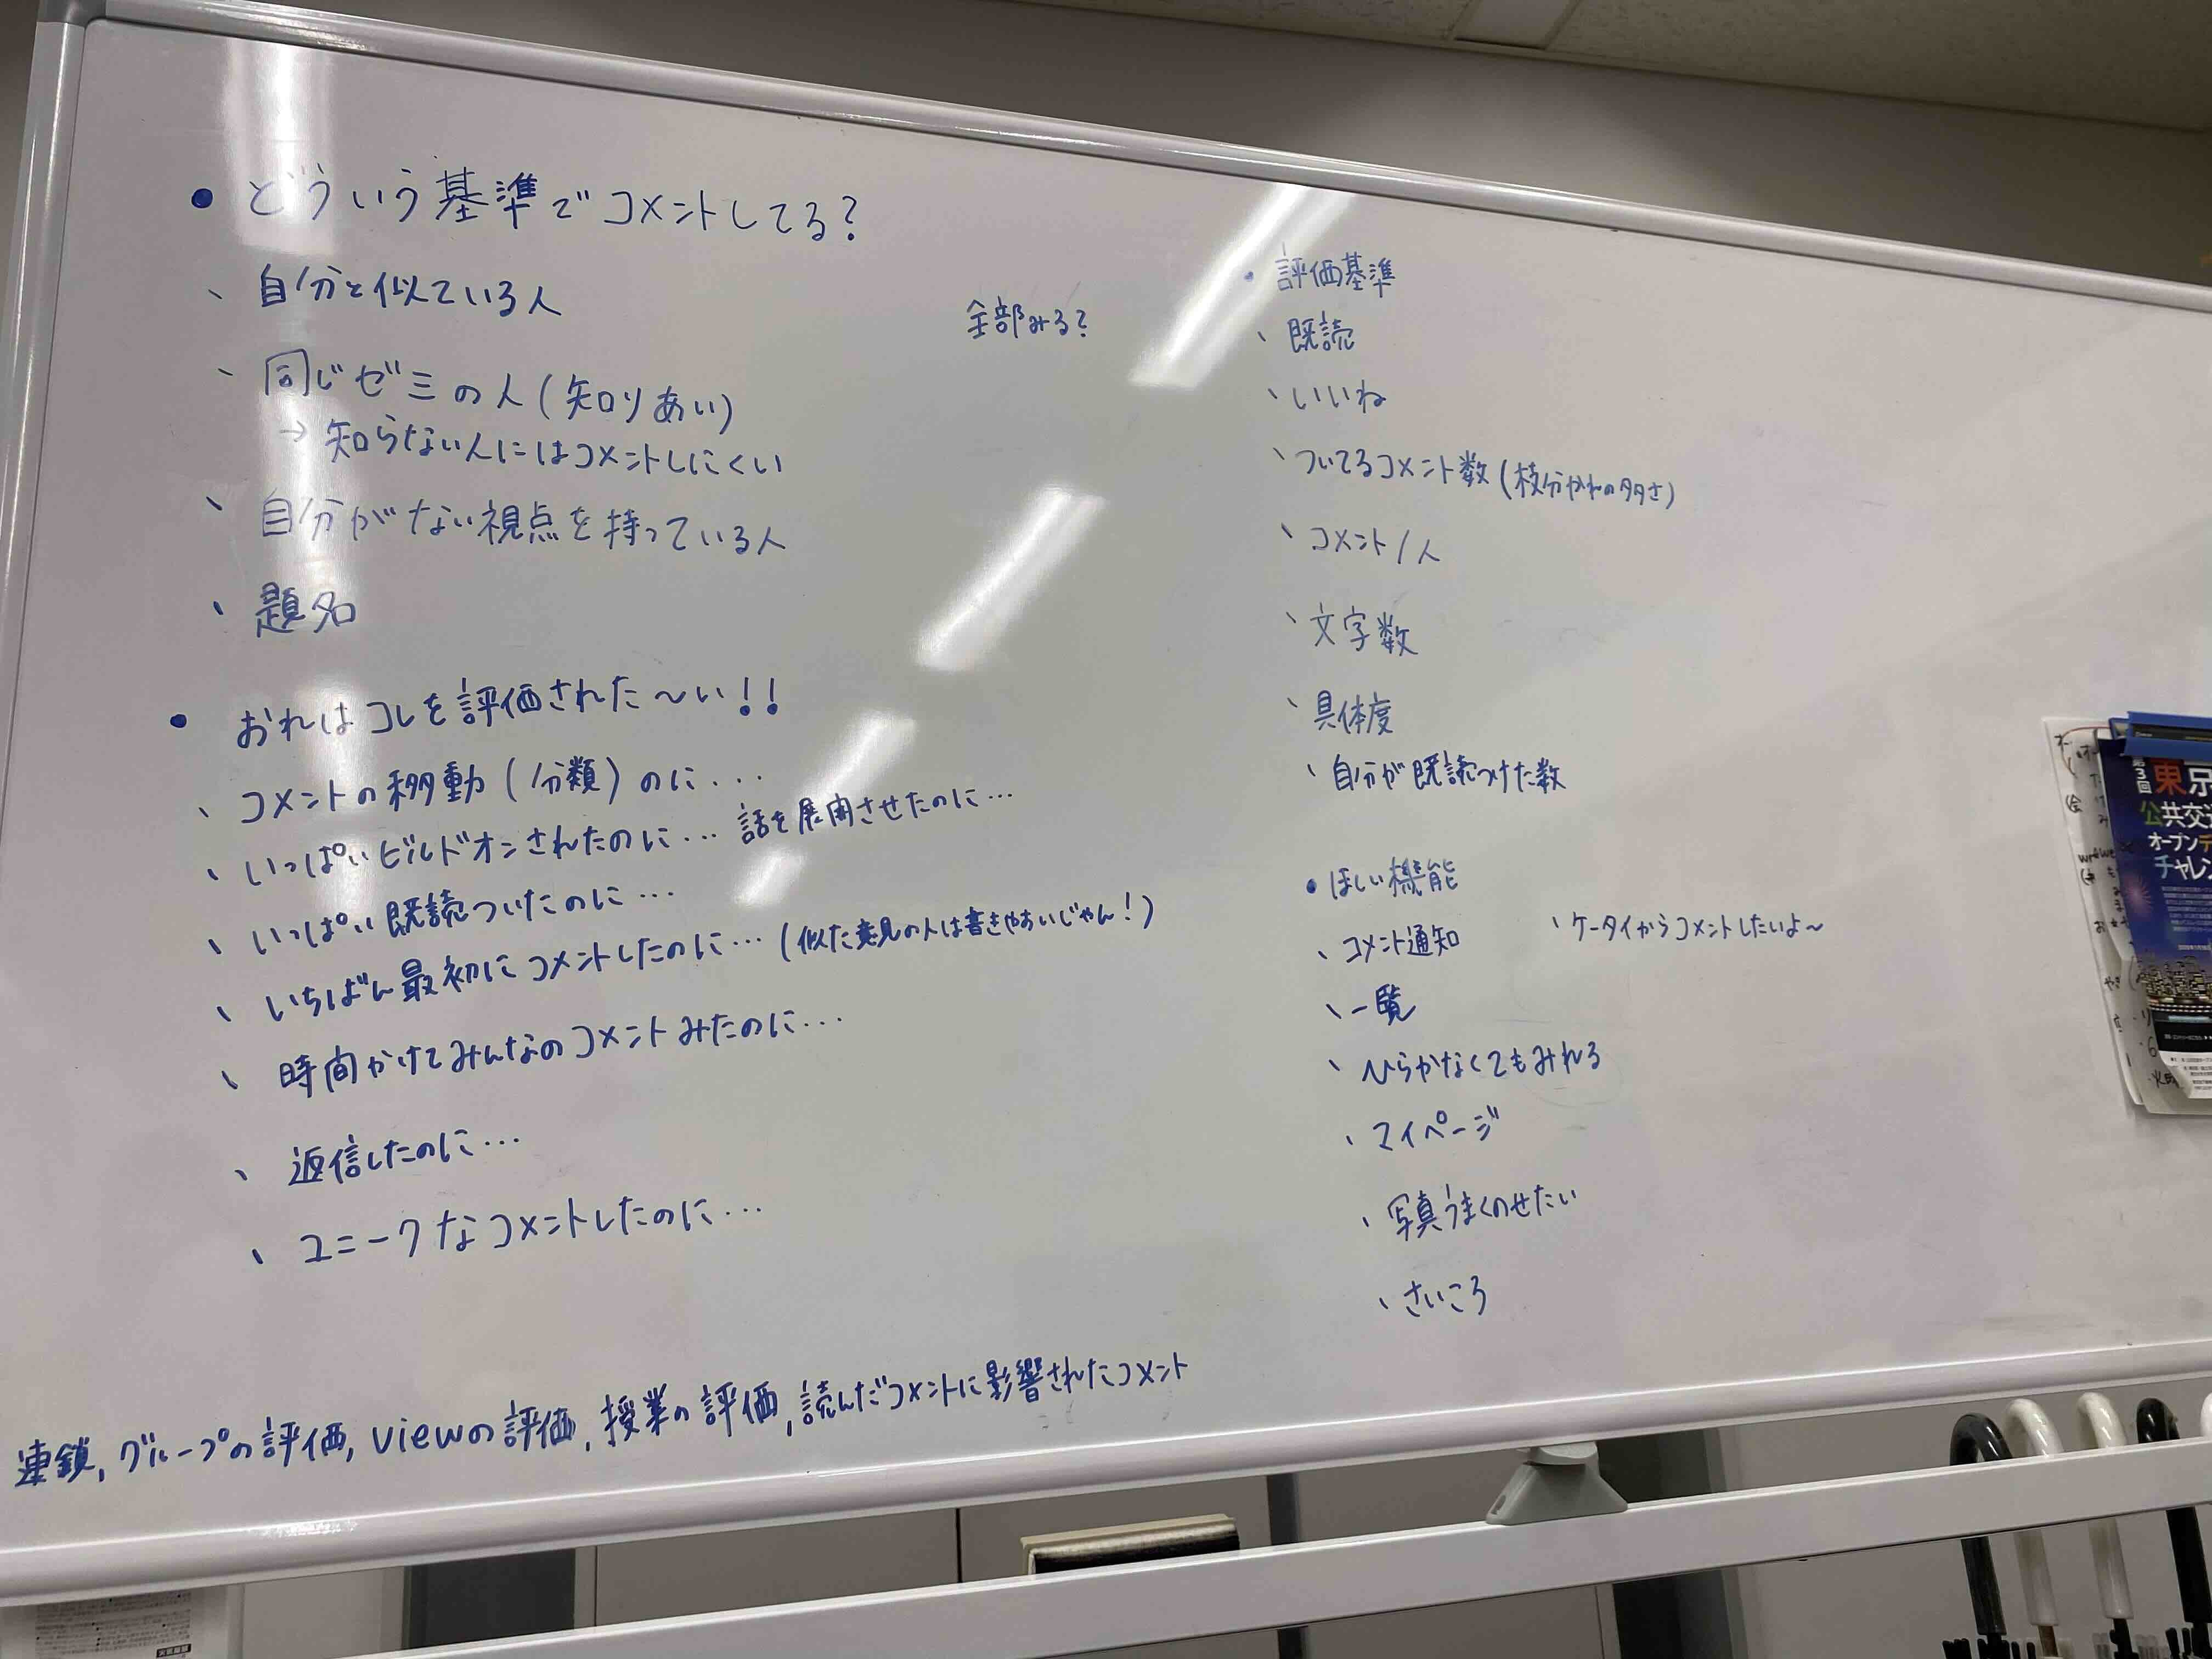 • どういう基準でコメントしてる?
、自分と似ている人
、同じゼミの人(知りあい)
→ 知らない人にはコメントしにくい
、自分がない視点を持っている人
、題名
• おれはコレを評価された〜い!!
、コメントの移動(分類)のに...
、いっぱいビルドオンされたのに... 話を展開させたのに...
、いっぱい既読ついたのに...
、いちばん最初にコメントしたのに...(似た意見の人は書きやすいじゃん!)
、時間かけてみんなのコメントみたのに...
、返信したのに...
、ユニークなコメントしたのに...
連鎖, グループの評価, viewの評価, 授業の評価, 読んだコメントに影響されたコメント
全部みる?
• 評価基準
、既読
、いいね
、ついてるコメント数(枝分かれの多さ)
、コメント/人
、文字数
、具体度
、自分が既読つけた数
• ほしい機能
、コメント通知
、ケータイからコメントしたいよ〜
、一覧
、ひらかなくてもみれる
、マイページ
、写真うまくのせたい
、さいころ
第3回
東京
公共交
オープンデ
チャレン